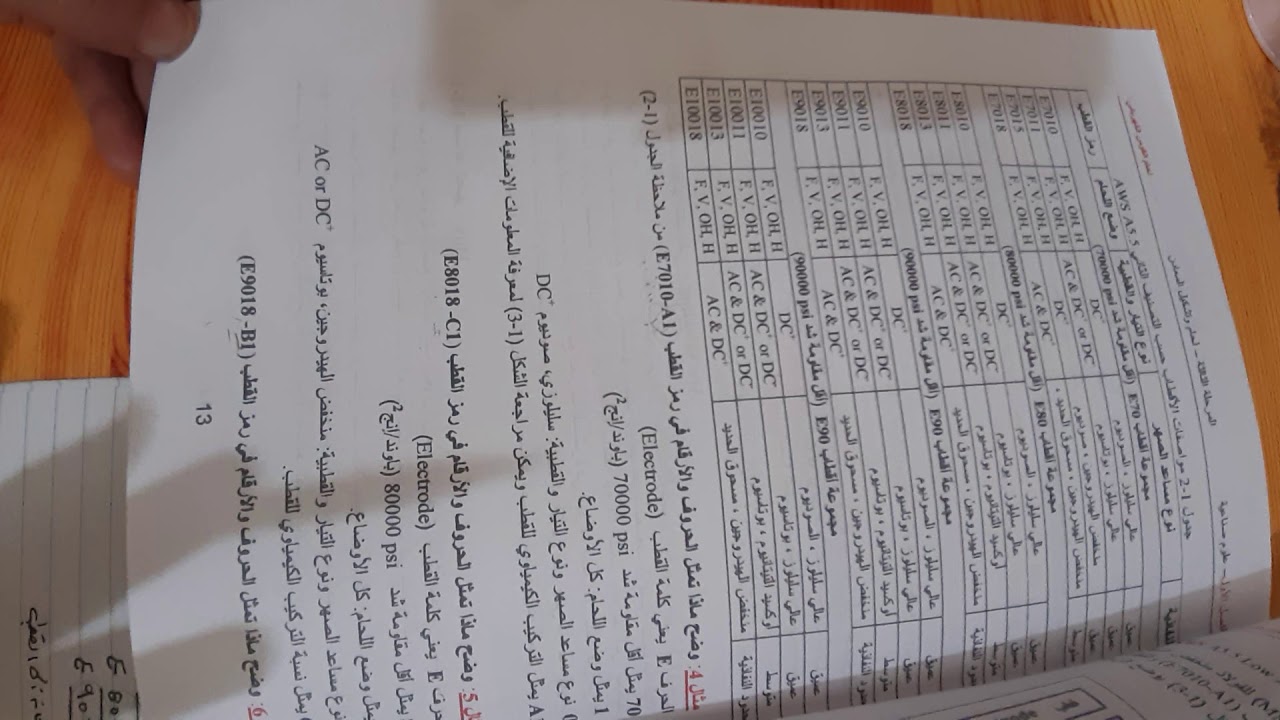 المرحلة الثالثة - علوم صناعية
جدول 1-2 مواصفات الأقطاب حسب التصنيف
AWS A5.5
رمز القطب وضع اللحام نوع التيار والقطبية نوع مساعد الصهر النفاذية
مجموعة القطب E70 (أقل مقاومة شد 70000 psi)
E7010 F, V, OH, H DC⁺ عالي سليلوز ، الصوديوم عميق
E7011 F, V, OH, H AC & DC⁺ or DC⁻ عالي سليلوز ، بوتاسيوم عميق
E7015 F, V, OH, H DC⁺ منخفض الهيدروجين ، صوديوم
E7018 F, V, OH, H AC & DC⁺ منخفض الهيدروجين ، مسحوق الحديد ، متوسط
مجموعة القطب E80 (أقل مقاومة شد 80000 psi)
E8010 F, V, OH, H DC⁺ عالي سليلوز ، الصوديوم عميق
E8011 F, V, OH, H AC & DC⁺ or DC⁻ عالي سليلوز ، بوتاسيوم عميق
E8013 F, V, OH, H AC & DC⁺ or DC⁻ أوكسيد التيتانيوم ، بوتاسيوم متوسط
E8018 F, V, OH, H AC & DC⁺ منخفض الهيدروجين ، مسحوق الحديد النفاذية
مجموعة القطب E90 (أقل مقاومة شد 90000 psi)
E9010 F, V, OH, H DC⁺ عالي سليلوز ، الصوديوم عميق
E9011 F, V, OH, H AC & DC⁺ or DC⁻ عالي سليلوز ، بوتاسيوم عميق
E9013 F, V, OH, H AC & DC⁺ or DC⁻ أوكسيد التيتانيوم ، بوتاسيوم متوسط
E9018 F, V, OH, H AC & DC⁺ منخفض الهيدروجين ، مسحوق الحديد النفاذية
مجموعة القطب E90 (أقل مقاومة شد 90000 psi)
E10010 F, V, OH, H DC⁺ عالي سليلوز ، الصوديوم عميق
E10011 F, V, OH, H AC & DC⁺ or DC⁻ عالي سليلوز ، بوتاسيوم عميق
E10013 F, V, OH, H AC & DC⁺ or DC⁻ أوكسيد التيتانيوم ، بوتاسيوم متوسط
E10018 F, V, OH, H AC & DC⁺ منخفض الهيدروجين ، مسحوق الحديد النفاذية
مثال 4: وضح ماذا تمثل الحروف والأرقام في رمز القطب (E7010-A1) من ملاحظة الجدول (1-2)
الحرف E يعني كلمة القطب (Electrode)
70 يمثل أقل مقاومة شد 70000 psi (باوند/انج²)
1 يمثل وضع اللحام: كل الأوضاع.
نوع مساعد الصهر ونوع التيار والقطبية: سليلوزي، صوديوم DC⁺
A يمثل التركيب الكيمياوي للقطب ويمكن مراجعة الشكل (1-3) لمعرفة المعلومات الإضافية للقطب.
5: وضح ماذا تمثل الحروف والأرقام في رمز القطب (E8018 -C1)
E يعني كلمة القطب (Electrode)
يمثل أقل مقاومة شد 80000 psi (باوند/انج²)
يمثل وضع اللحام: كل الأوضاع.
نوع مساعد الصهر ونوع التيار والقطبية: منخفض الهيدروجين، بوتاسيوم AC or DC⁺
يمثل نسبة التركيب الكيمياوي للقطب.
6: وضح ماذا تمثل الحروف والأرقام في رمز القطب (E9018 -B1)
13